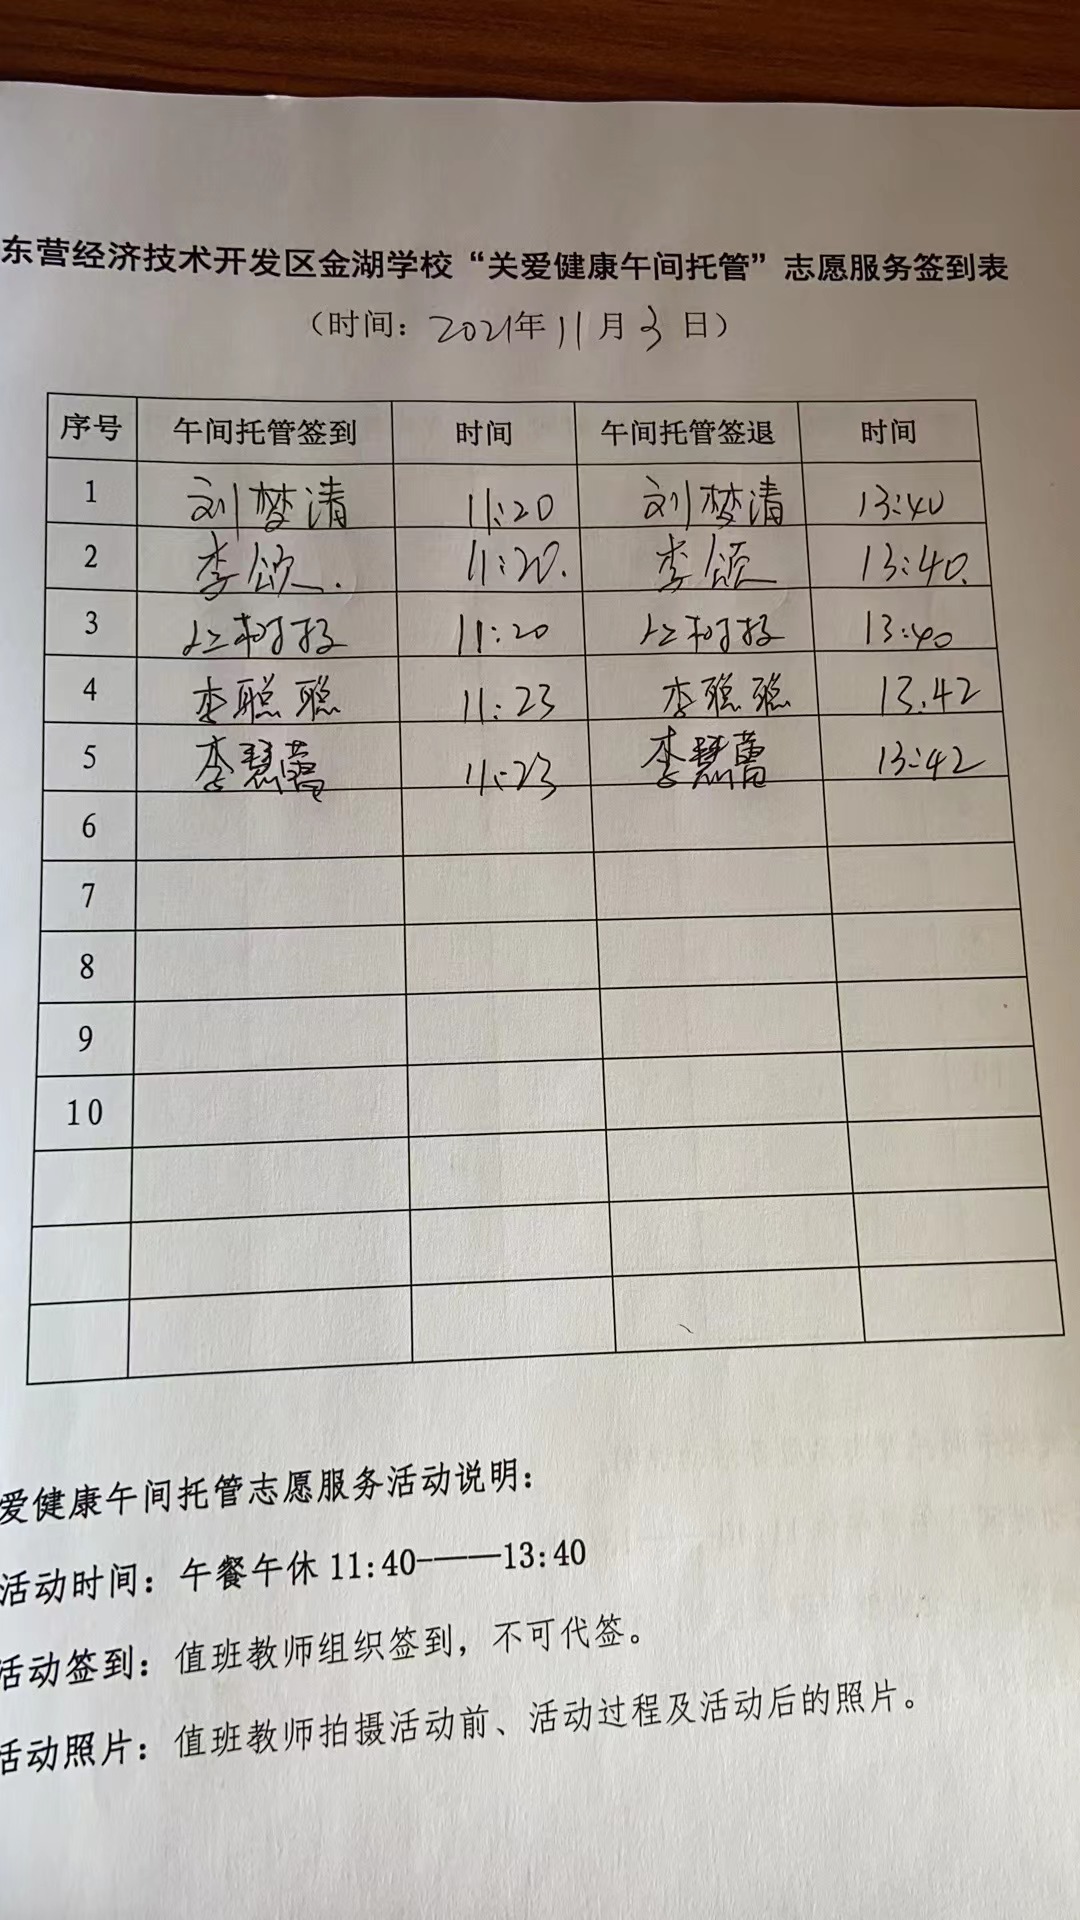 东营经济技术开发区金湖学校“关爱健康午间托管”志愿服务签到表
（时间：2021年11月3日）
序号 午间托管签到 时间 午间托管签退 时间
1 刘梦清 11:20 刘梦清 13:40
2 李颂. 11:20. 李颂 13:40.
3 11:20 13:40
4 李聪聪 11:23 李聪聪 13:42
5 李慧 11:23 李慧 13:42
6
7
8
9
10
爱健康午间托管志愿服务活动说明：
活动时间：午餐午休 11:40-——13:40
活动签到：值班教师组织签到，不可代签。
活动照片：值班教师拍摄活动前、活动过程及活动后的照片。